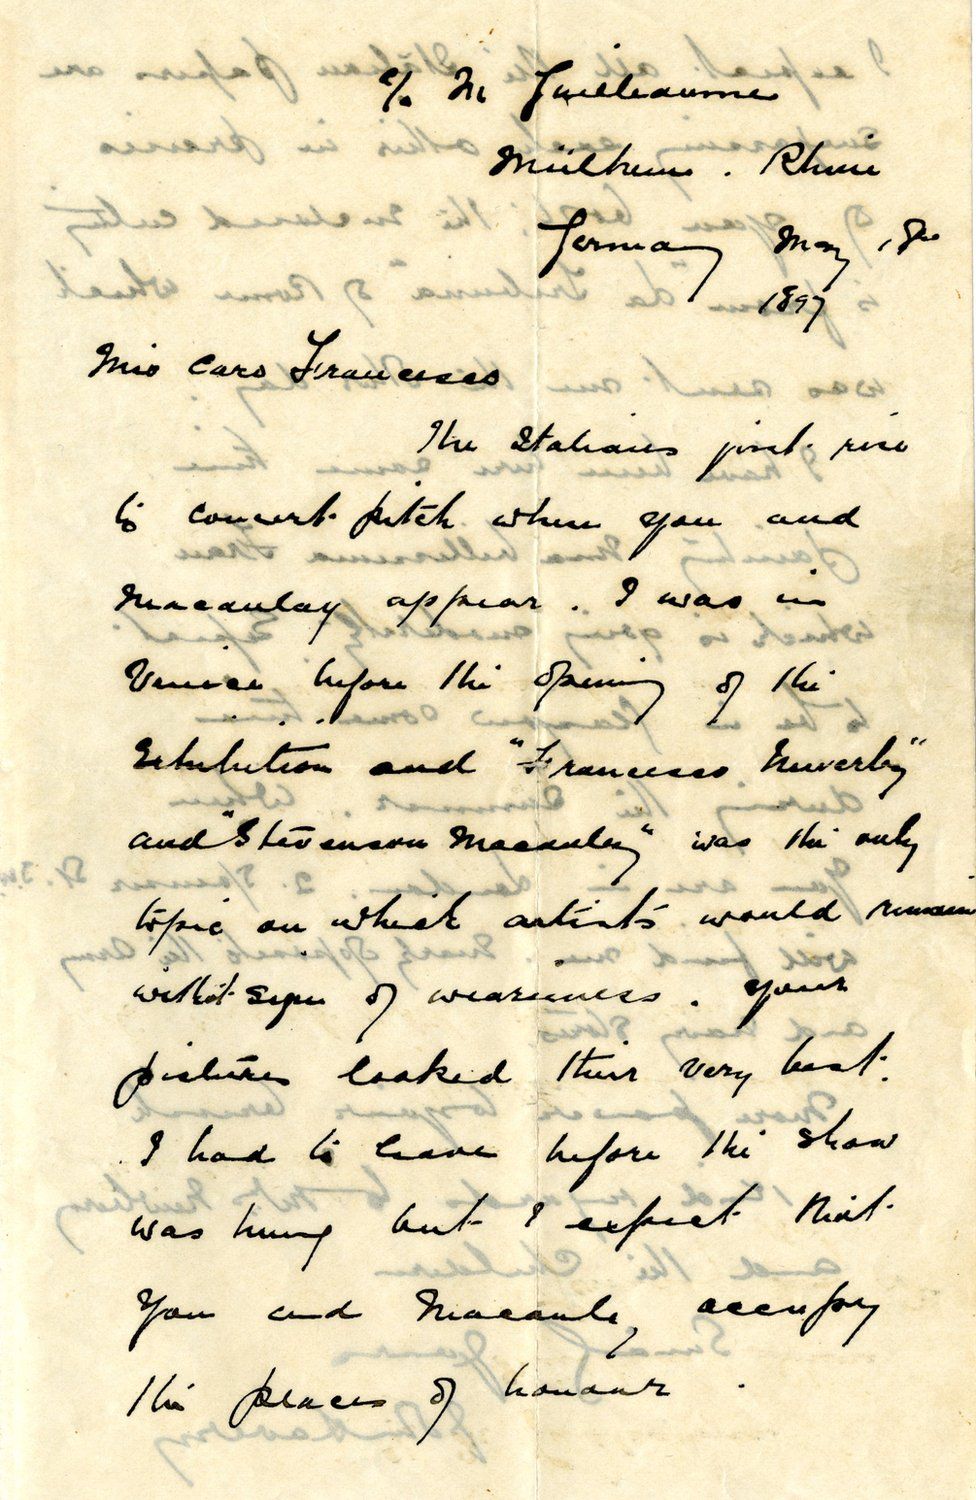 c/o M Guilleaume
Mülheim . Rhine
Germany May 18th
1897
Mio Caro Francesco
The Italians just rise
to concert pitch when you and
Macaulay appear . I was in
Venice before the opening of the
Exhibition and "Francesco Nuverby"
and "Stevenson Macaulay" was the only
topic on which artists would remain
without sign of weariness . Your
pictures looked their very best.
I had to leave before the show
was hung but I expect that
you and Macaulay occupy
the places of honour .